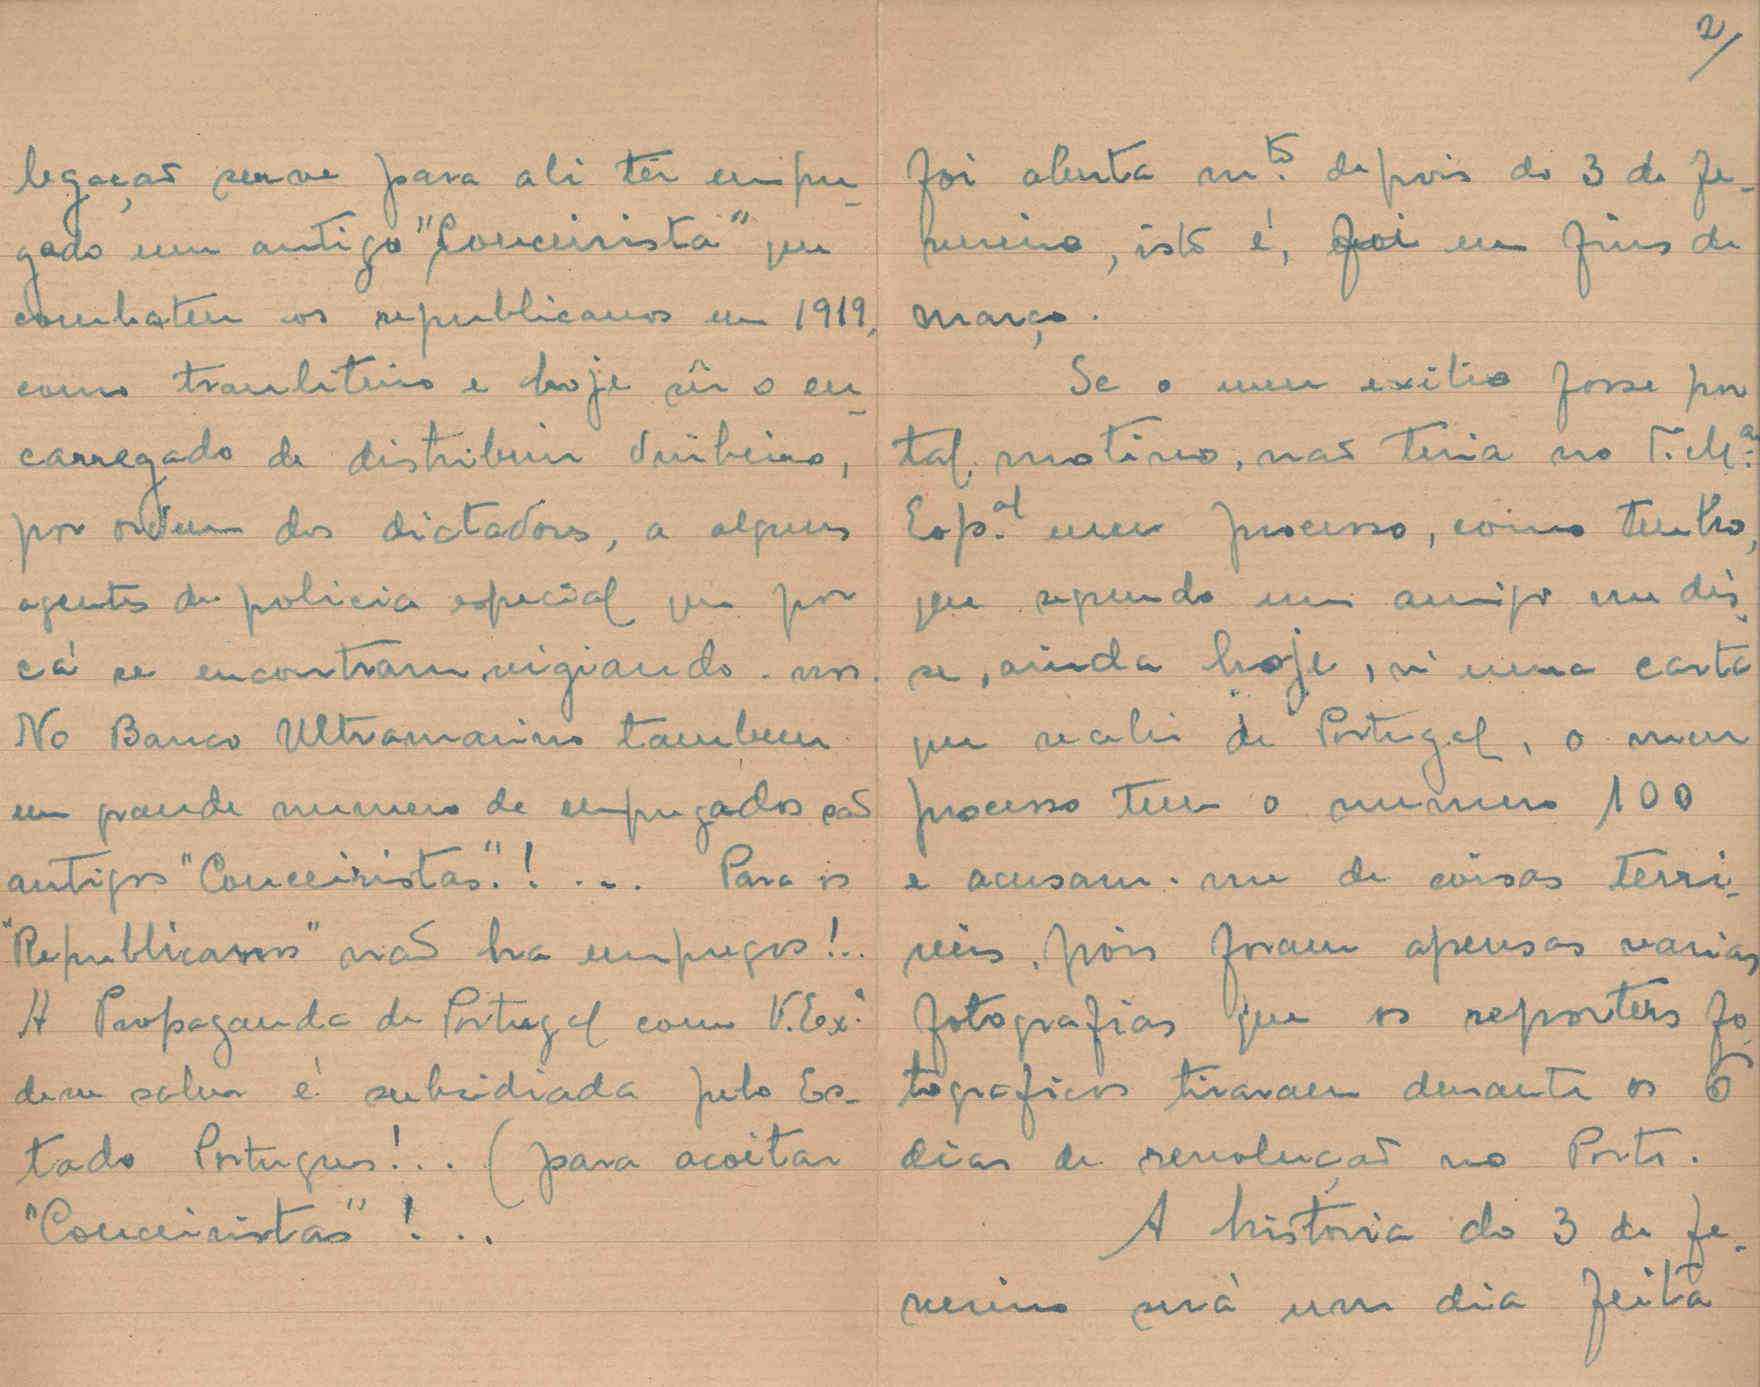 legação serve para ali ter empre-
gado um antigo "Couceirista" que
combateu os republicanos em 1919,
como trauliteiro e hoje é o en-
carregado de distribuir dinheiro,
por ordem dos dictadores, a alguns
agentes da policia especial que por
cá se encontram vigiando-nos.
No Banco Ultramarino tambem
um grande numero de empregados são
antigos "Couceiristas"!... Para os
"Republicanos" não ha empregos!..
A Propaganda de Portugal como V. Exª
deve saber é subsidiada pelo Es-
tado Portugues!.. (para acoitar
"Couceiristas"!..
2/
foi aberta mtº depois do 3 de Fe-
vereiro, isto é, foi em fins de
março.
Se o meu exilio fosse por
tal motivo, não teria no T. M.ar
Esp.al um processo, como tenho,
que segundo um amigo me dis-
se, ainda hoje, n'uma carta
que recebi de Portugal, o meu
processo tem o numero 100
e acusam-me de coisas terri-
veis, pois foram apensas varias
fotografias que os reporters fo-
tograficos tiraram durante os 5
dias de revolução no Porto.
A história do 3 de Fe-
vereiro será um dia feita